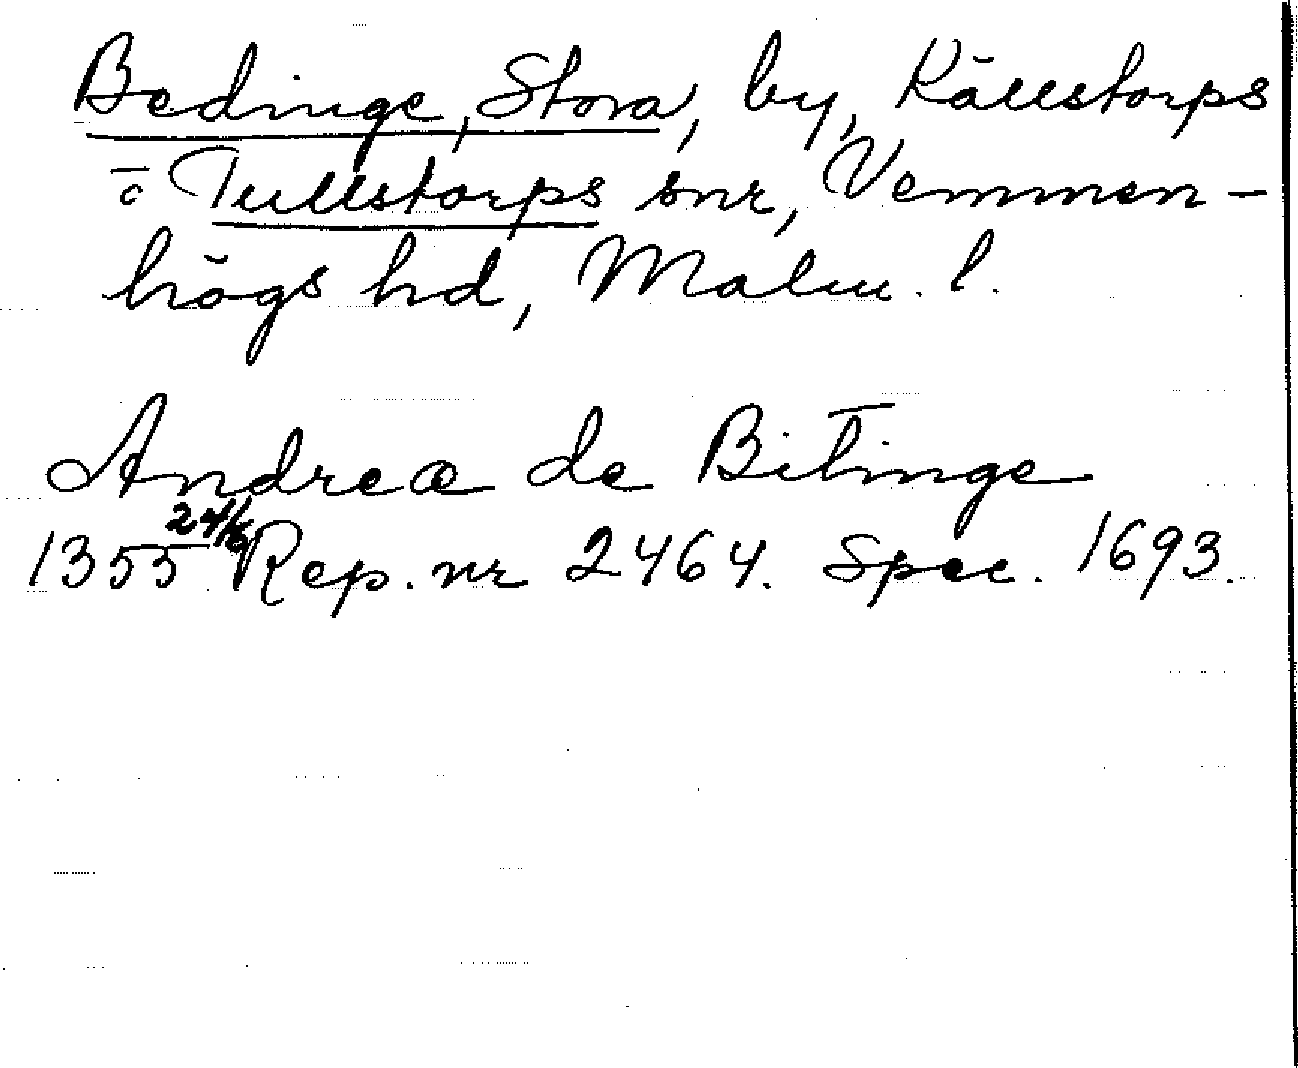 Bedinge, Stora, by, Källstorps
o Tullstorps snr, Vemmen-
högs hd, Malm. l.
Andrea de Bitinge
1355 24/6 Rep. nr 2464. Spec. 1693.